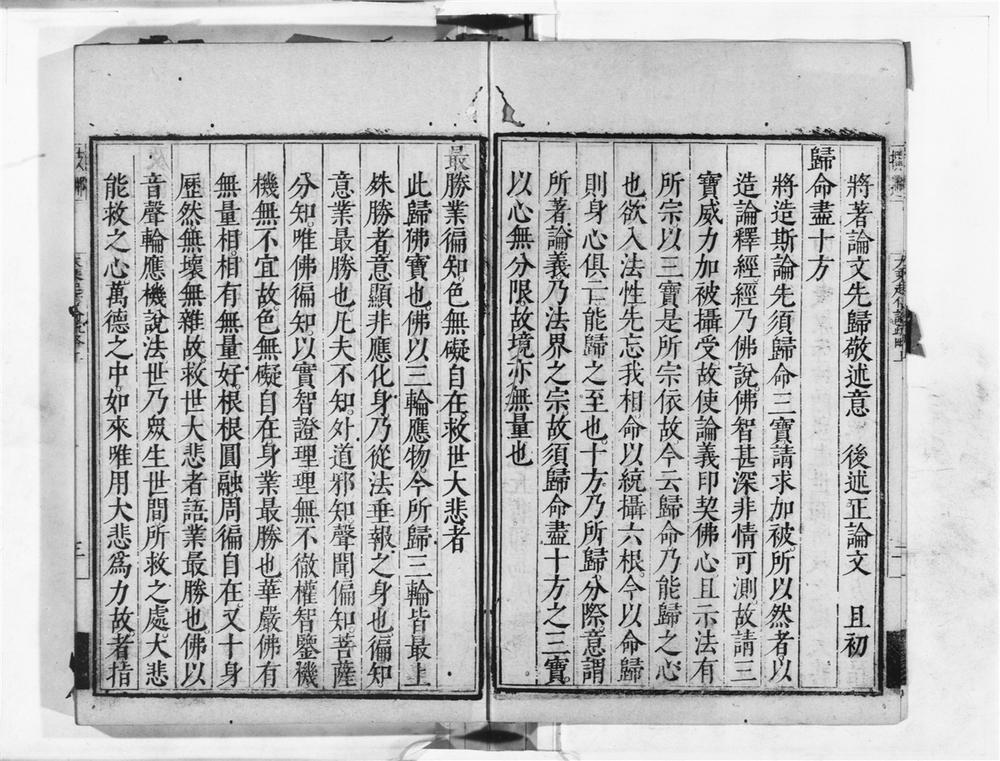 將著論文先歸敬述意　後述正論文　且初
歸命盡十方
將造斯論先須歸命三寶請求加被所以然者以
造論釋經經乃佛說佛智甚深非情可測故請三
寶威力加被攝受故使論義印契佛心且示法有
所宗以三寶是所宗依故今云歸命乃能歸之心
也欲入法性先忘我相命以統攝六根今以命歸
則身心俱亡能歸之至也十方乃所歸分際意謂
所著論義乃法界之宗故須歸命盡十方之三寶
以心無分限故境亦無量也
最勝業徧知色無礙自在救世大悲者
此歸佛寶也佛以三輪應物今所歸三輪皆最上
殊勝者意顯非應化身乃從法垂報之身也徧知
意業最勝也凡夫不知外道邪知聲聞偏知菩薩
分知唯佛徧知以實智證理理無不徹權智鑒機
機無不宜故色無礙自在身業最勝也華嚴佛有
無量相相有無量好根根圓融周徧自在又十身
歷然無壞無雜故救世大悲者語業最勝也佛以
音聲輪應機說法世乃眾生世間所救之處大悲
能救之心萬德之中如來唯用大悲為力故者指
三